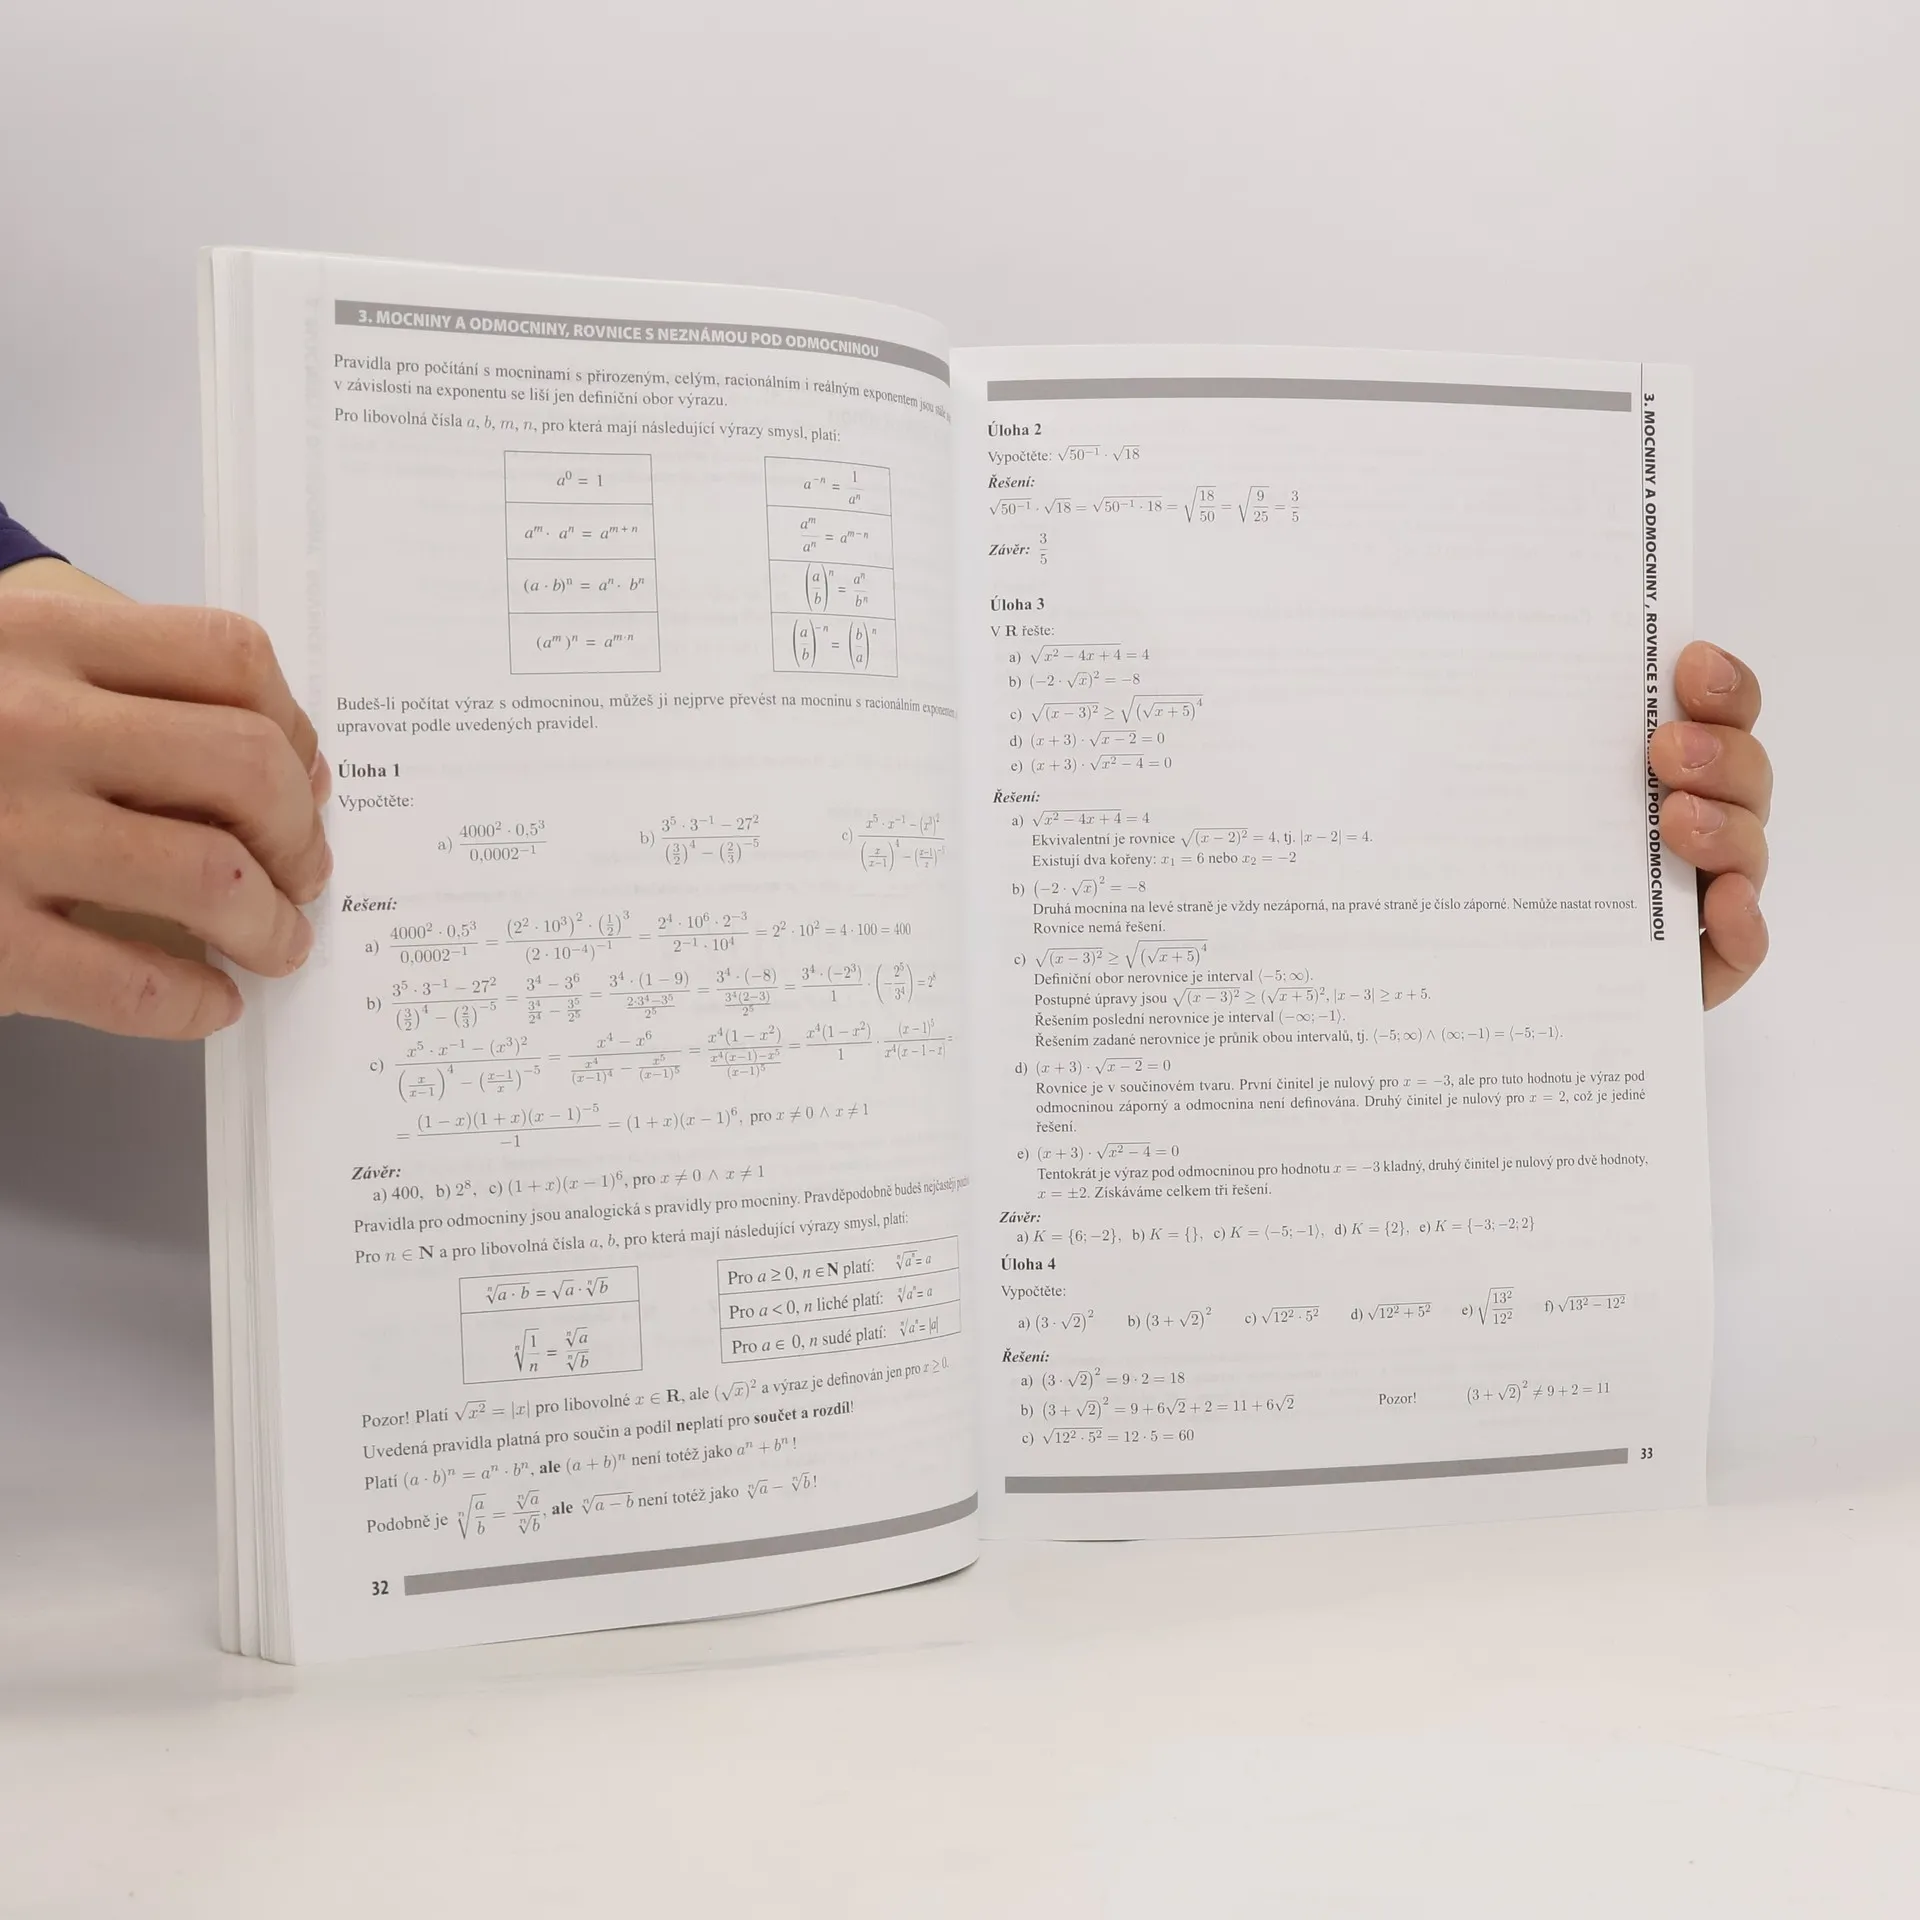 3. MOCNINY A ODMOCNINY, ROVNICE S NEZNÁMOU POD ODMOCNINOU
Pravidla pro počítání s mocninami s přirozeným, celým, racionálním i reálným exponentem jsou
v závislosti na exponentu se liší jen definiční obor výrazu.
Pro libovolná čísla a, b, m, n, pro která mají následující výrazy smysl, platí:
a⁰ = 1
aᵐ · aⁿ = aᵐ⁺ⁿ
(a · b)ⁿ = aⁿ · bⁿ
(aᵐ)ⁿ = aᵐ·ⁿ
a⁻ⁿ = 1/aⁿ
aᵐ/aⁿ = aᵐ⁻ⁿ
(a/b)ⁿ = aⁿ/bⁿ
(a/b)⁻ⁿ = (b/a)ⁿ
Budeš-li počítat výraz s odmocninou, můžeš ji nejprve převést na mocninu s racionálním exponentem
upravovat podle uvedených pravidel.
Úloha 1
Vypočtěte:
a) (4000² · 0,5³)/(0,0002⁻¹) b) (3⁵ · 3⁻¹ − 27²)/((3/2)⁴ − (2/3)⁻⁵) c) (x⁵ · x⁻¹ − (x³)²)/((x/(x−1))⁴ − ((x−1)/x)⁻⁵)
Řešení:
a) (4000² · 0,5³)/(0,0002⁻¹) = ((2² · 10³)² · (1/2)³)/((2 · 10⁻⁴)⁻¹) = (2⁴ · 10⁶ · 2⁻³)/(2⁻¹ · 10⁴) = 2² · 10² = 4 · 100 = 400
b) (3⁵ · 3⁻¹ − 27²)/((3/2)⁴ − (2/3)⁻⁵) = (3⁴ − 3⁶)/(3⁴/2⁴ − 3⁵/2⁵) = (3⁴ · (1 − 9))/((2·3⁴−3⁵)/2⁵) = (3⁴ · (−8))/((3⁴(2−3))/2⁵) = (3⁴ · (−2³))/1 · (−2⁵/3⁴) = 2⁸
c) (x⁵ · x⁻¹ − (x³)²)/((x/(x−1))⁴ − ((x−1)/x)⁻⁵) = (x⁴ − x⁶)/(x⁴/(x−1)⁴ − x⁵/(x−1)⁵) = (x⁴(1 − x²))/((x⁴(x−1)−x⁵)/(x−1)⁵) = (x⁴(1 − x²))/1 · (x − 1)⁵/(x⁴(x − 1 − x)) =
= ((1 − x)(1 + x)(x − 1)⁻⁵)/(−1) = (1 + x)(x − 1)⁶, pro x ≠ 0 ∧ x ≠ 1
Závěr:
a) 400, b) 2⁸, c) (1 + x)(x − 1)⁶, pro x ≠ 0 ∧ x ≠ 1
Pravidla pro odmocniny jsou analogická s pravidly pro mocniny. Pravděpodobně budeš nejčastěji
Pro n ∈ N a pro libovolná čísla a, b, pro která mají následující výrazy smysl, platí:
ⁿ√(a · b) = √a · ⁿ√b
ⁿ√(1/n) = ⁿ√a/ⁿ√b
Pro a ≥ 0, n ∈ N platí: ⁿ√aⁿ = a
Pro a < 0, n liché platí: ⁿ√aⁿ = a
Pro a ∈ 0, n sudé platí: ⁿ√aⁿ = |a|
Pozor! Platí √x² = |x| pro libovolné x ∈ R, ale (√x)² a výraz je definován jen pro x ≥ 0.
Uvedená pravidla platná pro součin a podíl neplatí pro součet a rozdíl!
Platí (a · b)ⁿ = aⁿ · bⁿ, ale (a + b)ⁿ není totéž jako aⁿ + bⁿ !
Podobně je ⁿ√(a/b) = ⁿ√a/ⁿ√b, ale ⁿ√(a − b) není totéž jako ⁿ√a − ⁿ√b !
32
Úloha 2
Vypočtěte: √(50⁻¹) · √18
Řešení:
√(50⁻¹) · √18 = √(50⁻¹ · 18) = √(18/50) = √(9/25) = 3/5
Závěr: 3/5
Úloha 3
V R řešte:
a) √(x² − 4x + 4) = 4
b) (−2 · √x)² = −8
c) √((x − 3)²) ≥ √((√(x + 5))⁴)
d) (x + 3) · √(x − 2) = 0
e) (x + 3) · √(x² − 4) = 0
Řešení:
a) √(x² − 4x + 4) = 4
Ekvivalentní je rovnice √((x − 2)²) = 4, tj. |x − 2| = 4.
Existují dva kořeny: x₁ = 6 nebo x₂ = −2
b) (−2 · √x)² = −8
Druhá mocnina na levé straně je vždy nezáporná, na pravé straně je číslo záporné. Nemůže nastat rovnost.
Rovnice nemá řešení.
c) √((x − 3)²) ≥ √((√(x + 5))⁴)
Definiční obor nerovnice je interval ⟨−5; ∞).
Postupné úpravy jsou √((x − 3)²) ≥ (√(x + 5))², |x − 3| ≥ x + 5.
Řešením poslední nerovnice je interval (−∞; −1⟩.
Řešením zadané nerovnice je průnik obou intervalů, tj. ⟨−5; ∞) ∧ (∞; −1⟩ = ⟨−5; −1⟩.
d) (x + 3) · √(x − 2) = 0
Rovnice je v součinovém tvaru. První činitel je nulový pro x = −3, ale pro tuto hodnotu je výraz pod
odmocninou záporný a odmocnina není definována. Druhý činitel je nulový pro x = 2, což je jediné
řešení.
e) (x + 3) · √(x² − 4) = 0
Tentokrát je výraz pod odmocninou pro hodnotu x = −3 kladný, druhý činitel je nulový pro dvě hodnoty,
x = ±2. Získáváme celkem tři řešení.
Závěr:
a) K = {6; −2}, b) K = {}, c) K = ⟨−5; −1⟩, d) K = {2}, e) K = {−3; −2; 2}
Úloha 4
Vypočtěte:
a) (3 · √2)² b) (3 + √2)² c) √(12² · 5²) d) √(12² + 5²) e) √(13²/12²) f) √(13² − 12²)
Řešení:
a) (3 · √2)² = 9 · 2 = 18
b) (3 + √2)² = 9 + 6√2 + 2 = 11 + 6√2 Pozor! (3 + √2)² ≠ 9 + 2 = 11
c) √(12² · 5²) = 12 · 5 = 60
33
3. MOCNINY A ODMOCNINY, ROVNICE S POD ODMOCNINOU